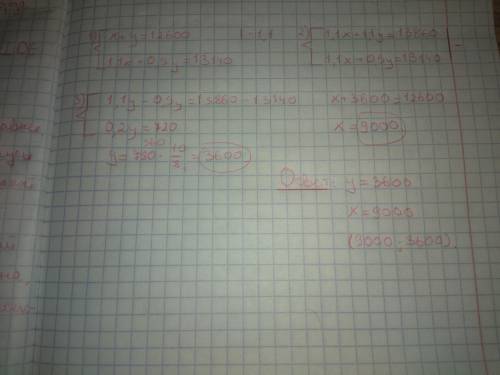 1) { x + y = 12600 | · 1,1
1,1x + 0,9y = 13140
2) { 1,1x + 1,1y = 13860
1,1x + 0,9y = 13140
3) { 1,1y - 0,9y = 13860 - 13140
0,2y = 720
y = 720 · 10/2 = 3600
x + 3600 = 12600
x = 9000
Ответ: y = 3600
x = 9000
(9000; 3600)